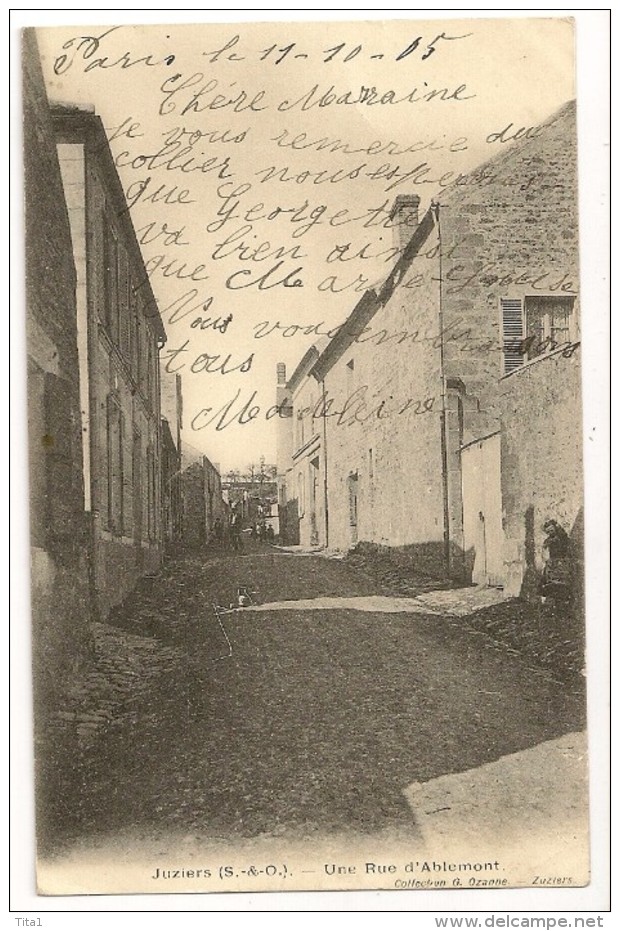 Paris le 11-10-05
Chère Marraine
je vous remercie du
collier nous esperons
que Georgette
va bien ainsi
que Marie-Louise
Nous vous embrassons
tous
Madeleine
Juziers (S.-&-O.). — Une Rue d'Ablemont.
Collection G. Ozanne. — Zuziers.
Tita1
www.delcampe.net